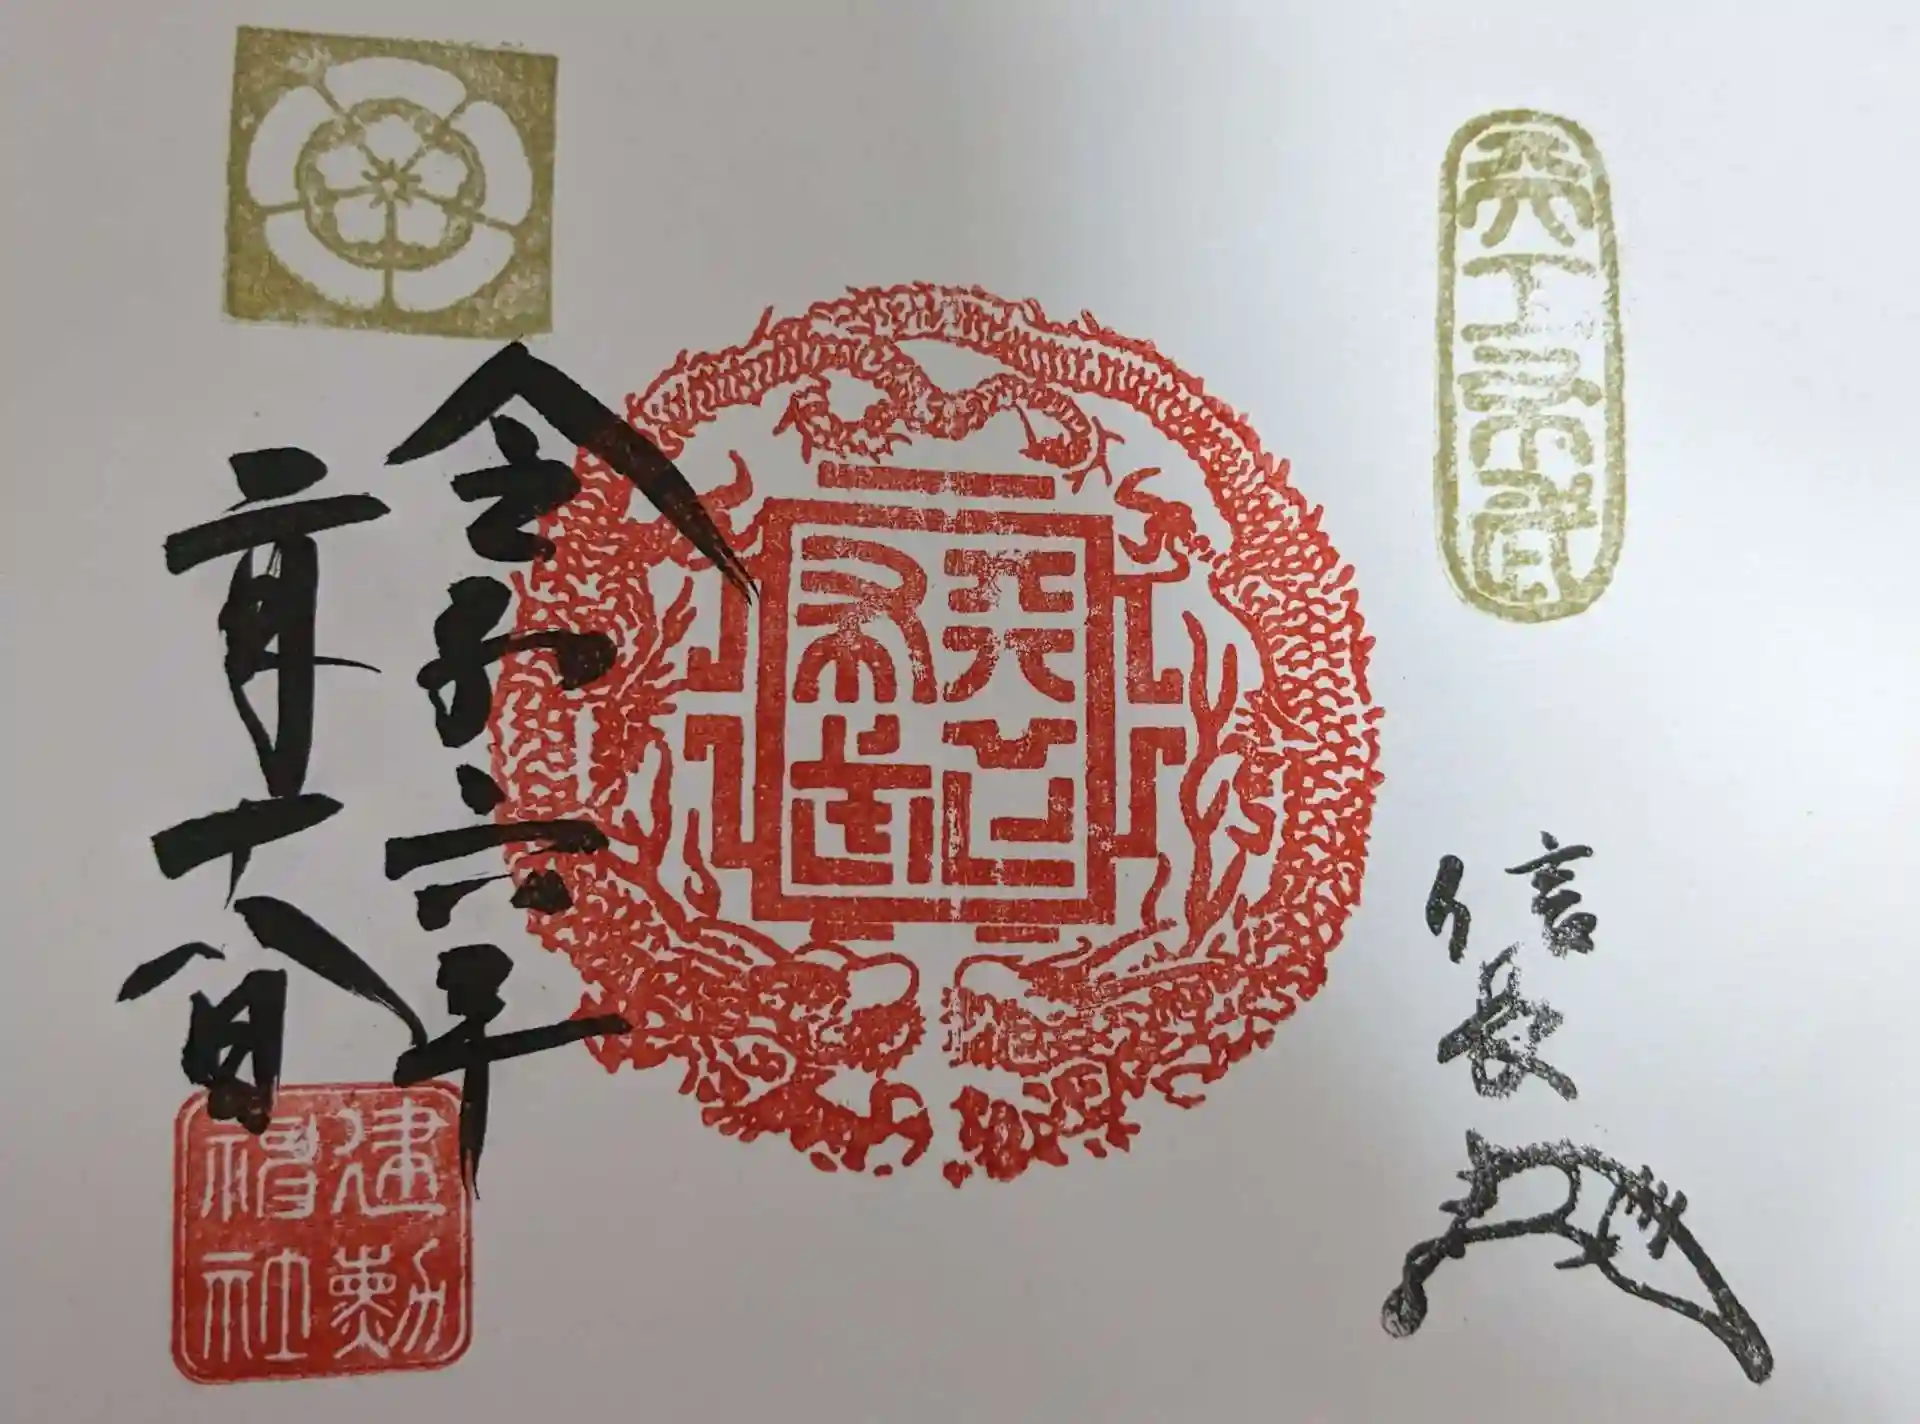 天下布武
信長
天下
布武
令和六年
二月十八日
建勲
神社